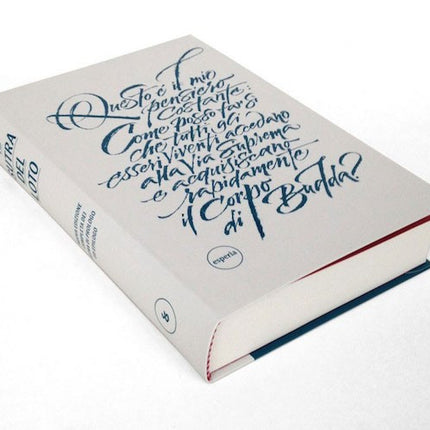 Questo è il mio
pensiero
costante:
Come posso far sì
che tutti gli
esseri viventi accedano
alla Via suprema
e acquisiscano
rapidamente
il Corpo
di Budda?
esperia
SUTRA
DEL
LOTO